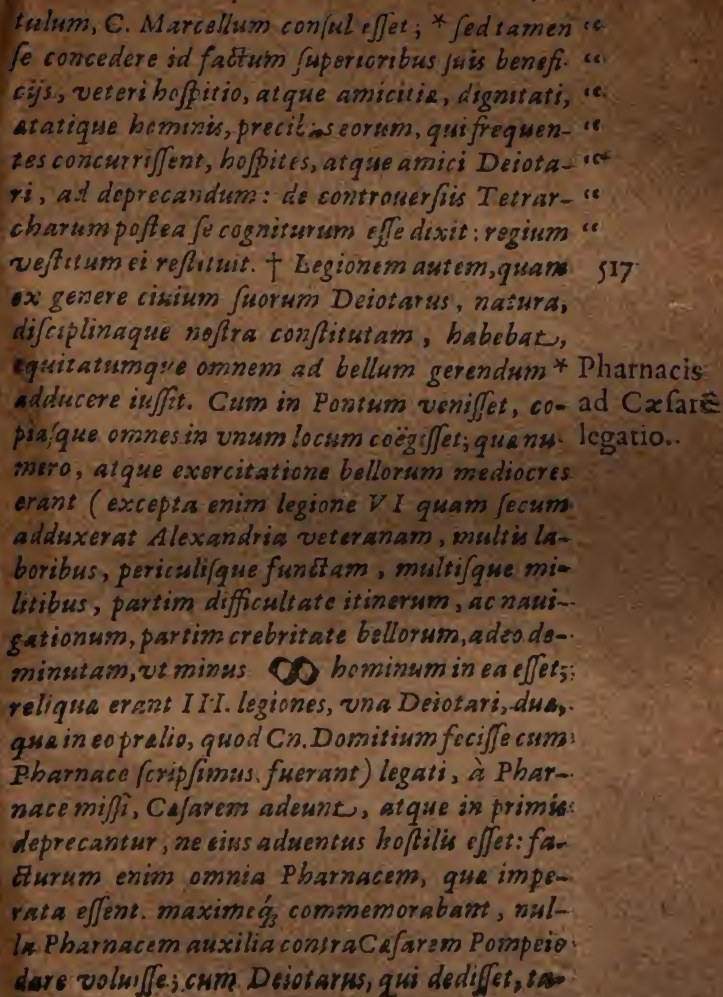 tulum, C. Marcellum conſul eſſet; * ſed tamen “
ſe concedere id factum ſuperioribus ſuis benefi- “
cijs, veteri hoſpitio, atque amicitiæ, dignitati, “
ætatique hominis, precibus eorum, qui frequen- “
tes concurriſſent, hoſpites, atque amici Deiota- “
ri, ad deprecandum: de controuerſiis Tetrar- “
charum poſtea ſe cogniturum eſſe dixit: regium “
veſtitum ei reſtituit. † Legionem autem, quam 517
ex genere ciuium ſuorum Deiotarus, natura,
diſciplinaque noſtra conſtitutam, habebat,
equitatumque omnem ad bellum gerendum * Pharnacis
adducere iuſſit. Cum in Pontum veniſſet, co- ad Cæſarẽ
piaſque omnes in vnum locum coëgiſſet; quæ nu- legatio.
mero, atque exercitatione bellorum mediocres
erant (excepta enim legione VI quam ſecum
adduxerat Alexandria veteranam, multis la-
boribus, periculiſque functam, multiſque mi-
litibus, partim difficultate itinerum, ac naui-
gationum, partim crebritate bellorum, adeo de-
minutam, vt minus ↀ hominum in ea eſſet;
reliquæ erant III. legiones, vna Deiotari, duæ,
quæ in eo prælio, quod Cn. Domitium feciſſe cum
Pharnace ſcripſimus fuerant) legati, à Phar-
nace miſſi, Cæſarem adeunt, atque in primis
deprecantur, ne eius aduentus hoſtilis eſſet: fa-
cturum enim omnia Pharnacem, quæ impe-
rata eſſent. maximeq́; commemorabant, nul-
la Pharnacem auxilia contra Cæſarem Pompeio
dare voluiſſe; cum Deiotarus, qui dediſſet, ta-